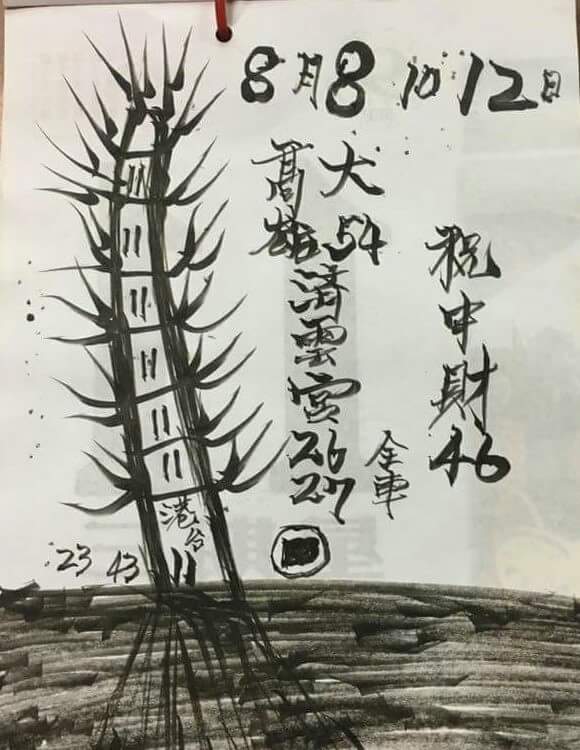 8月8 10 12日
高雄
犬 54
済雲宮
26
27
全車
祝中財
46
港台
23 43